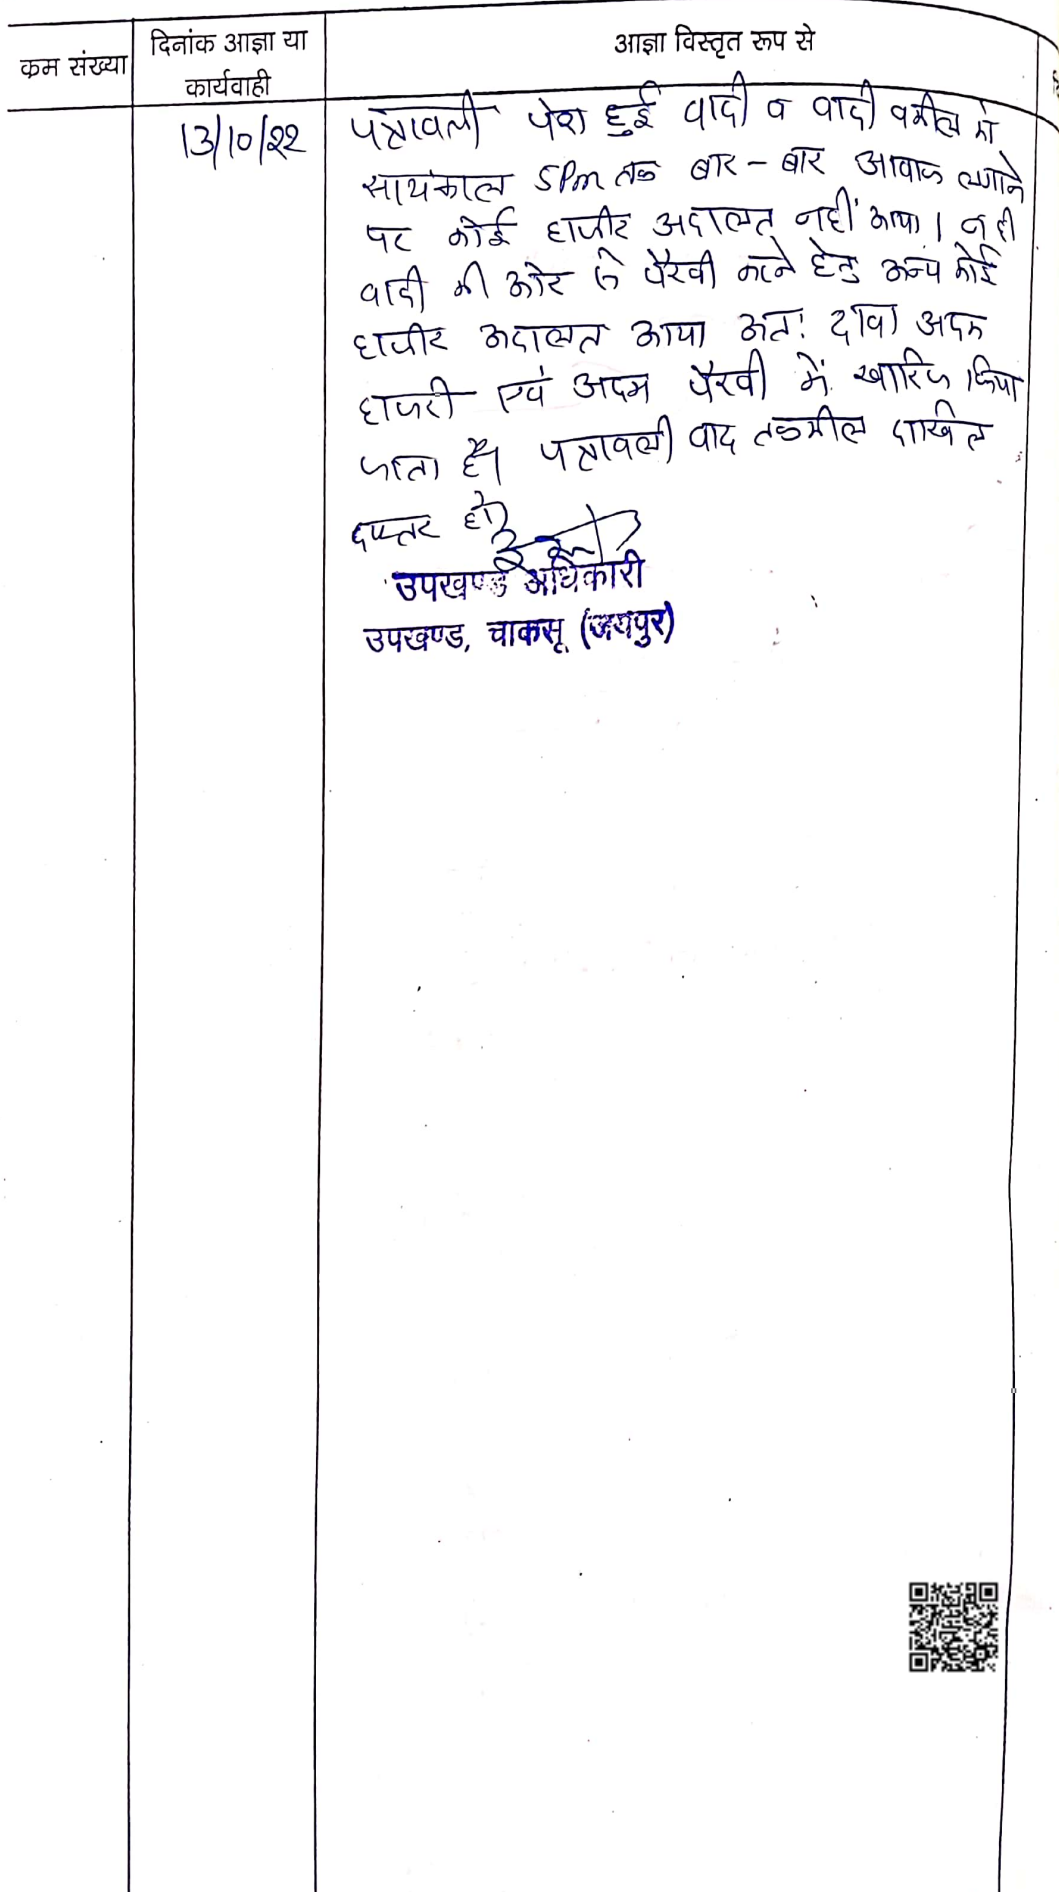 क्रम संख्या
दिनांक आज्ञा या
कार्यवाही
आज्ञा विस्तृत रूप से
13/10/22
पत्रावली पेश हुई वादी व वादी वकील को
सायंकाल 5Pm तक बार - बार आवाज लगाने
पर कोई हाजीर अदालत नहीं आया । न ही
वादी की ओर से पैरवी करने हेतु अन्य कोई
हाजीर अदालत आया अतः दावा अदम
हाजरी एवं अदम पैरवी में खारिज किया
जाता है। पत्रावली वाद तकमील दाखिल
दफ्तर हो
उपखण्ड अधिकारी
उपखण्ड, चाकसू (जयपुर)